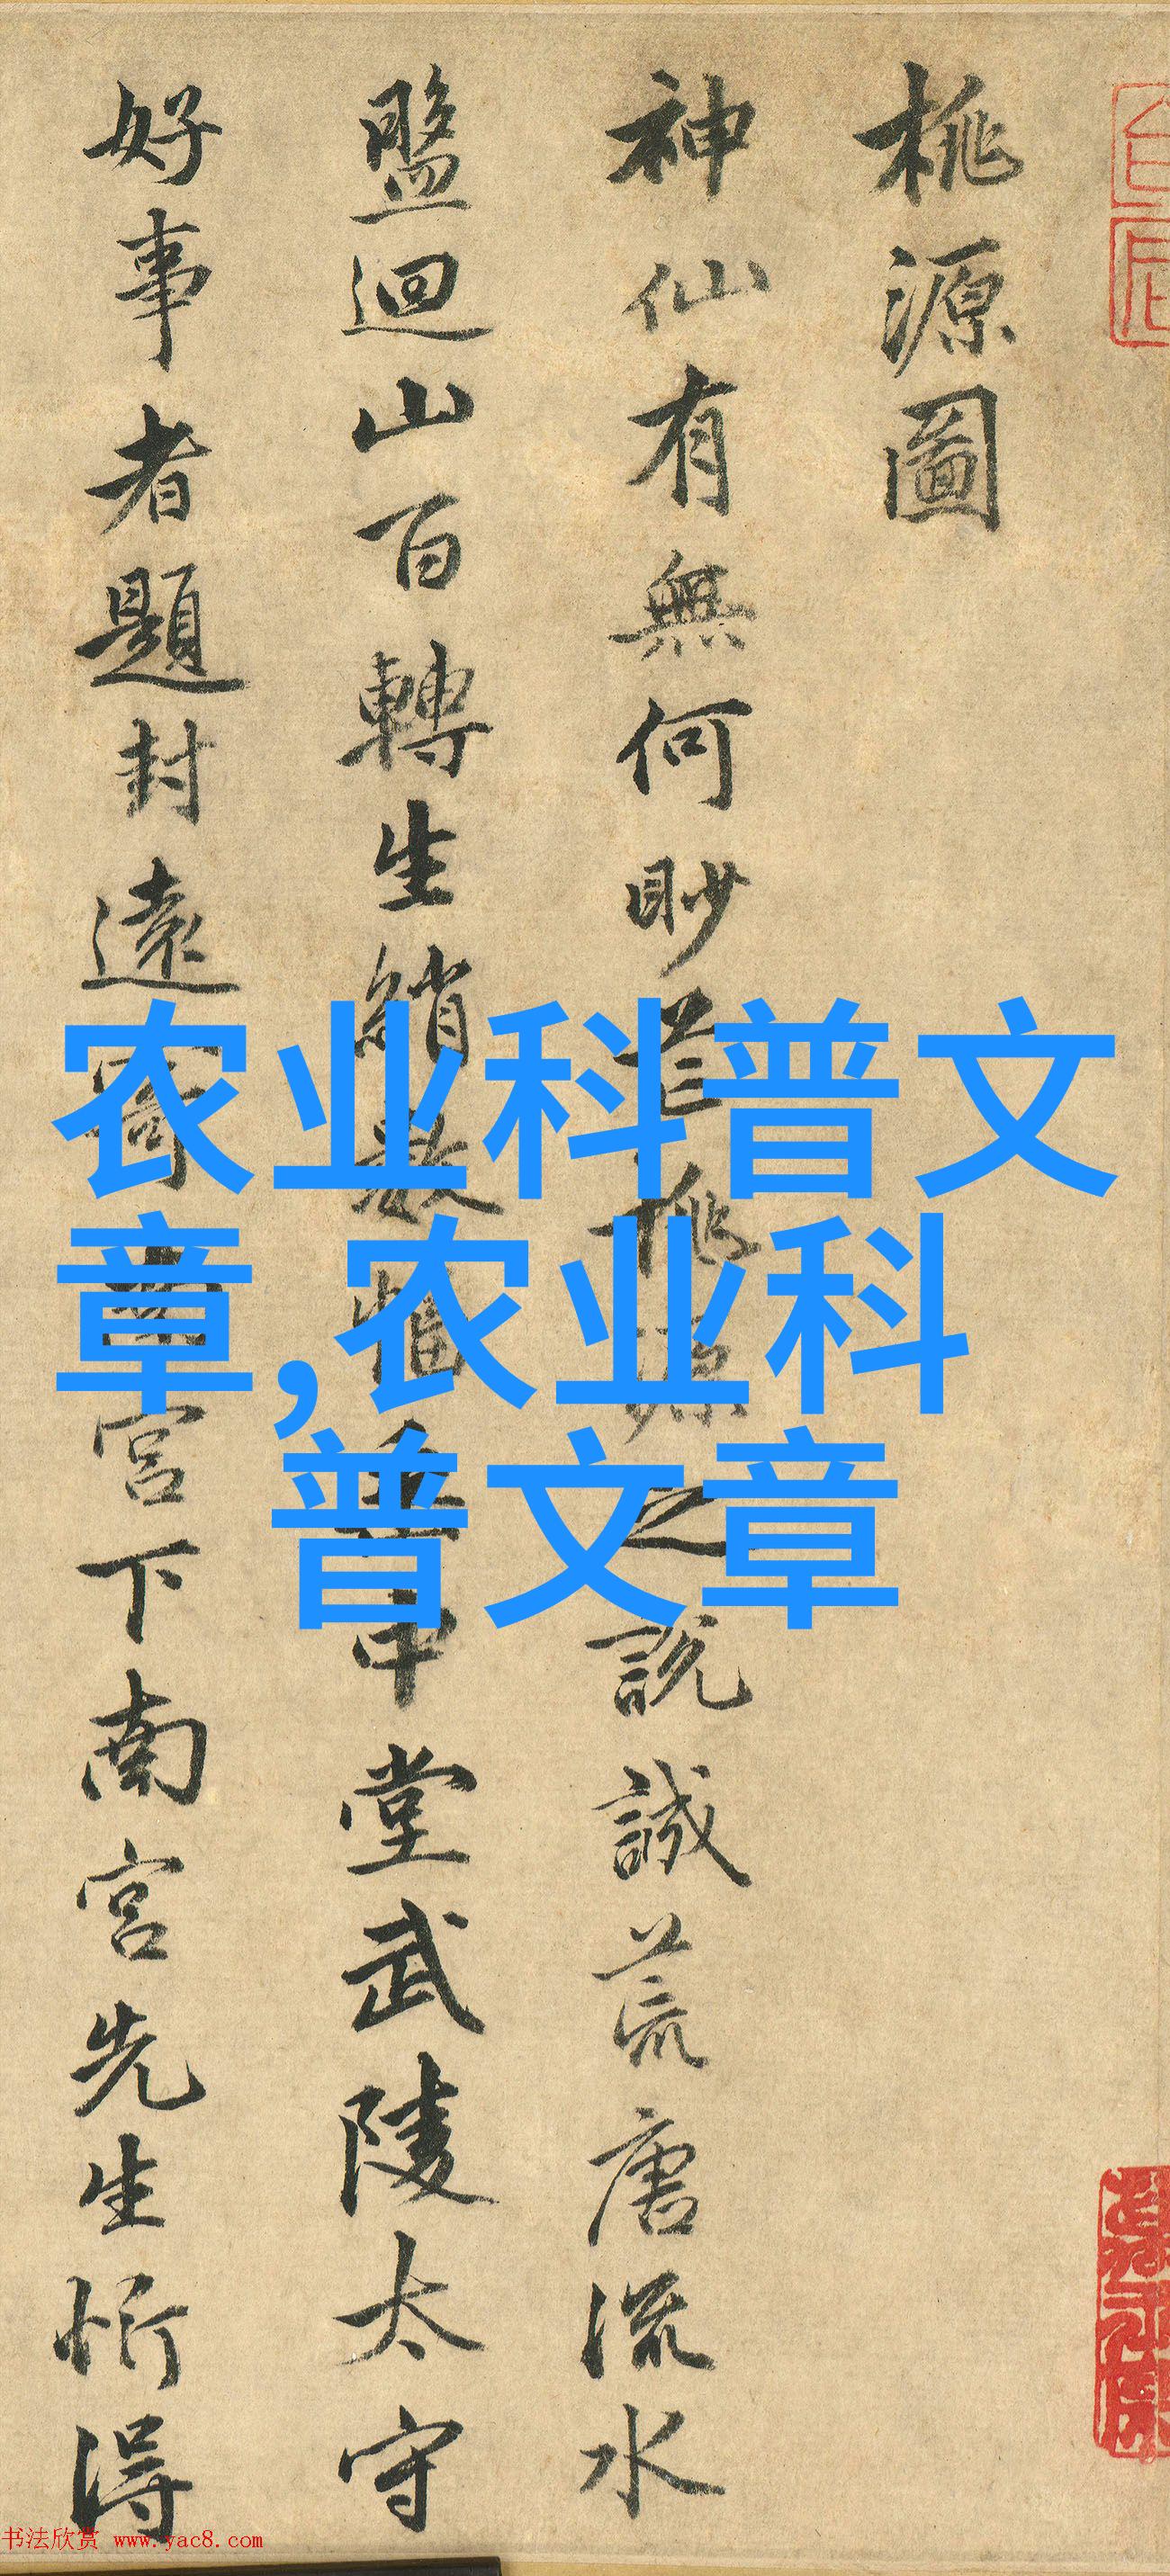 桃源圖
神仙有無何眇芒桃源之說誠荒唐流水
盤迴山百轉生綃數幅垂中堂武陵太守
好事者題封遠寄南宮下南宮先生忻得
农业科普文
章,农业科
普文章
书法欣赏 www.yac8.com